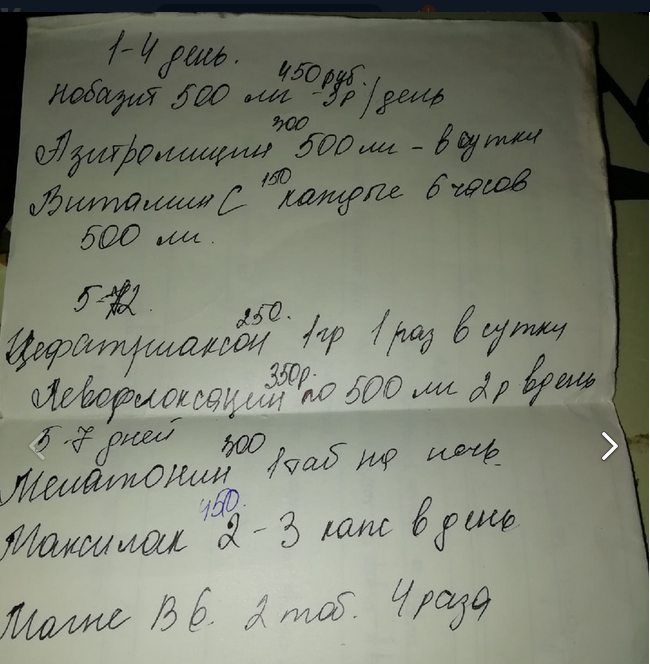 1-4 день.
450 руб.
Нобазит 500 мг -3р/день
300
Азитромицин 500 мг - в сутки
150
Витамин С каждые 6 часов
500 мг.
5-12.
250.
Цефатриаксон 1гр 1 раз в сутки
350р.
Левофлоксацин по 500 мг 2р в день
5-7 дней
300
Мелатонин 1таб на ночь.
450.
Максилак 2-3 капс в день
Магне В6. 2 таб. 4 раза